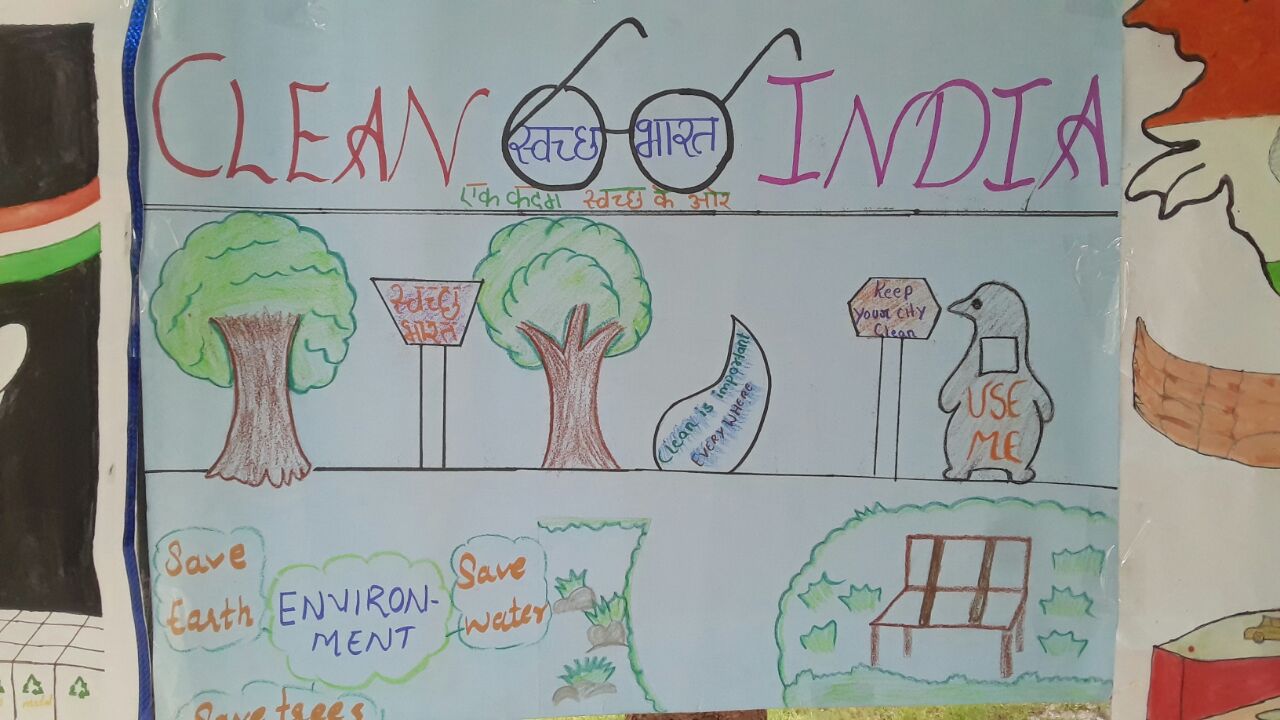 CLEAN स्वच्छ भारत INDIA
एक कदम स्वच्छ के ओर
स्वच्छ
भारत
Keep
Your City
Clean
Clean is important
EVERY WHERE
USE
ME
Save
Earth
ENVIRON-
MENT
Save
water
Save trees